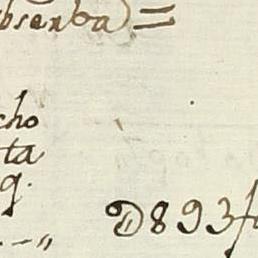 bsenba) =
cho
ta
q.
D893f